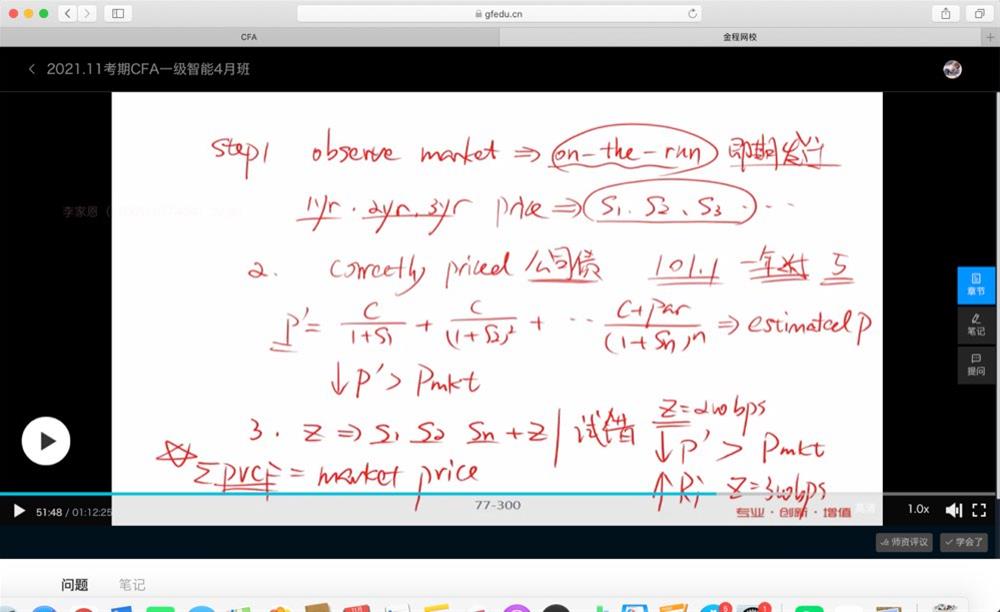 gfedu.cn
CFA
金程网校
2021.11考期CFA一级智能4月班
step1 observe market ⇒ on-the-run 即期发行
李家恩
1yr. 2yr. 3yr price ⇒ S1. S2、S3 . ..
2. correctly priced 公司债 101.1 一年 5
P' = C/(1+S1) + C/(1+S2)² + ... (C+Par)/(1+Sn)ⁿ ⇒ estimated P
↓ P' > Pmkt
3. Z ⇒ S1 S2 Sn + Z | 试错 Z=200bps
↓ P' > Pmkt
☆ ΣPVCF = market price
↑ Ri Z=300bps
章节
笔记
提问
77-300
专业·创新·增值
51:48 / 01:12:25
高清
1.0x
师资评议
学会了
问题
笔记